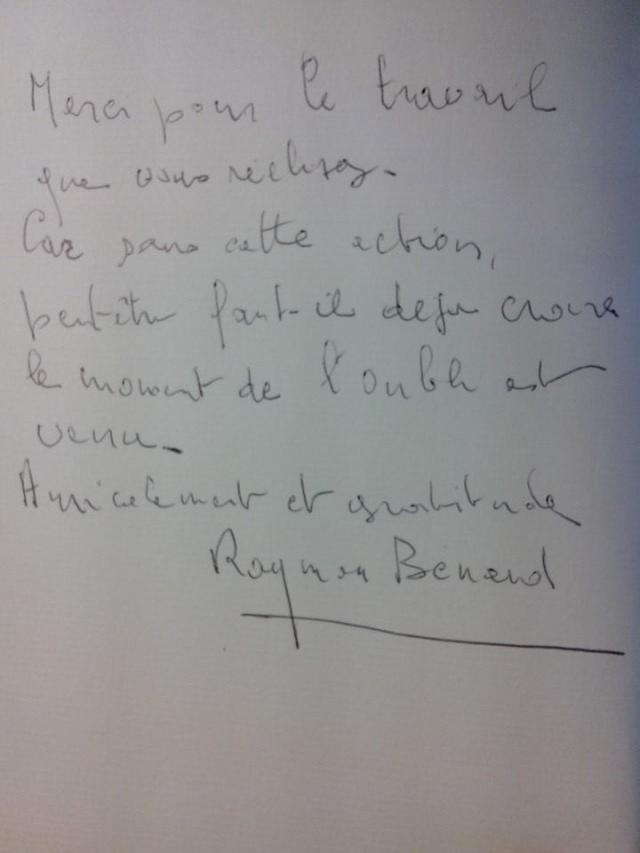 Merci pour le travail
que vous réalisez.
Car sans cette action,
peut-être faut-il déjà croire
le moment de l'oubli est
venu.
Amicalement et gratitude
Raymon Benard